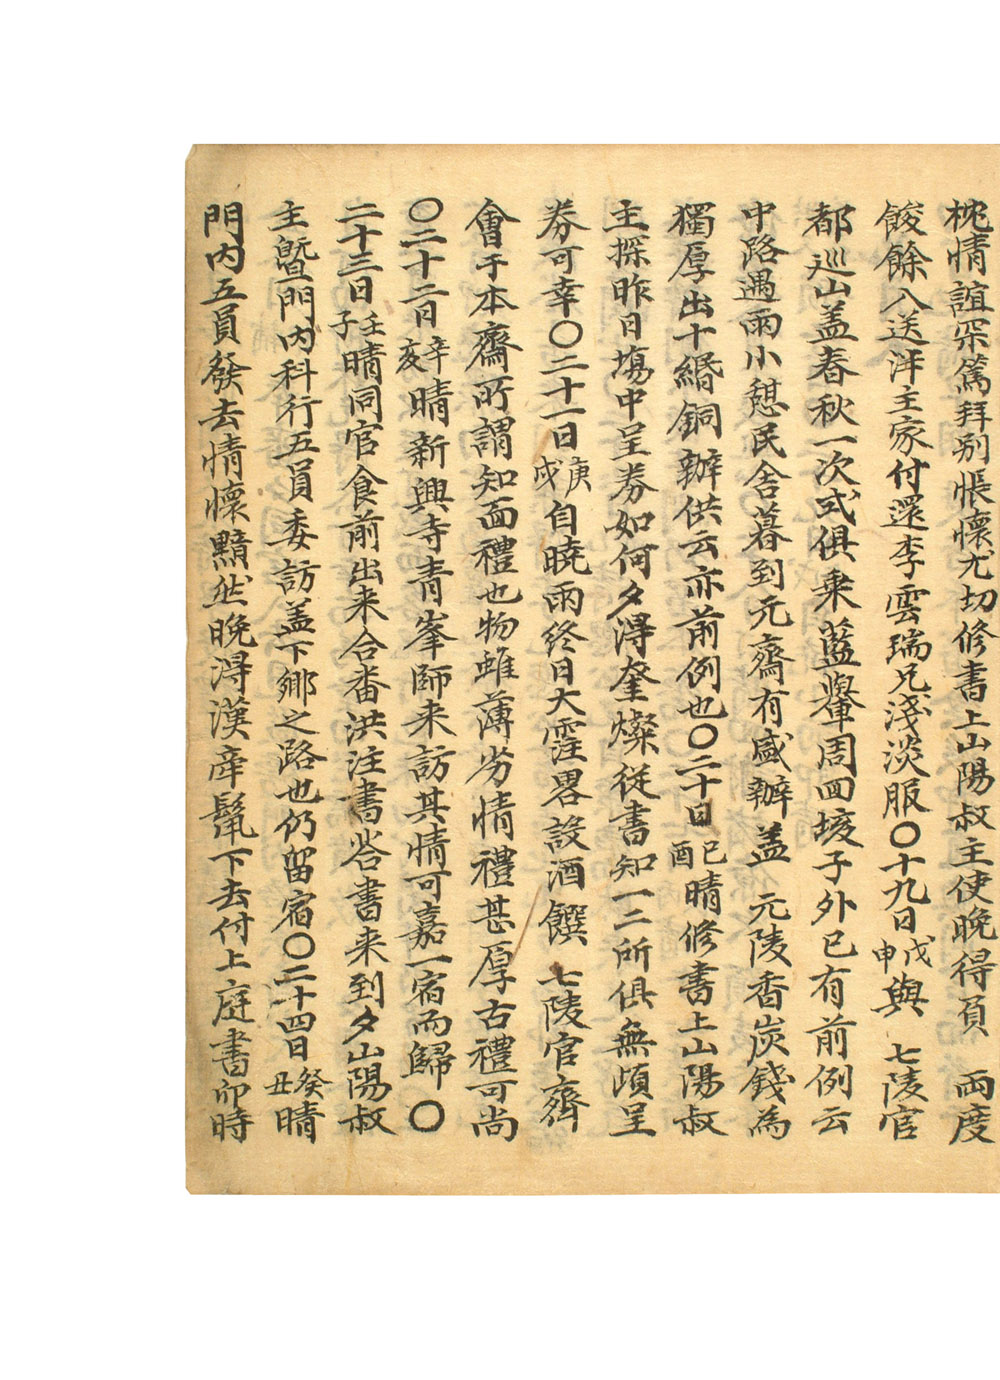 枕情誼深篤拜別悵懷尤切修書上山陽叔主使晩得見 兩度
餕餘入送泮主家付還李雲瑞兄淺淡服○十九日戊申與 七陵官
都巡山盖春秋一次式俱乘藍輿周回垓子外已有前例云
中路遇雨小憩民舍暮到元齋有盛辦盖 元陵香炭錢為
獨厚出十緡銅辦供云亦前例也○二十日己酉晴修書上山陽叔
主探昨日塲中呈券如何夕得奎燦從書知一二所俱無頉呈
券可幸○二十一日庚戌自曉雨終日大霔畧設酒饌 七陵官齊
會于本齋所謂知面禮也物雖薄劣情禮甚厚古禮可尚
○二十二日辛亥晴新興寺靑峯師来訪其情可嘉一宿而歸○
二十三日壬子晴同官食前出来合番洪注書答書来到夕山陽叔
主曁門内科行五員委訪盖下鄉之路也仍留宿○二十四日癸丑晴
門内五員發去情懷黯然晩得漢産髢下去付上庭書卯時